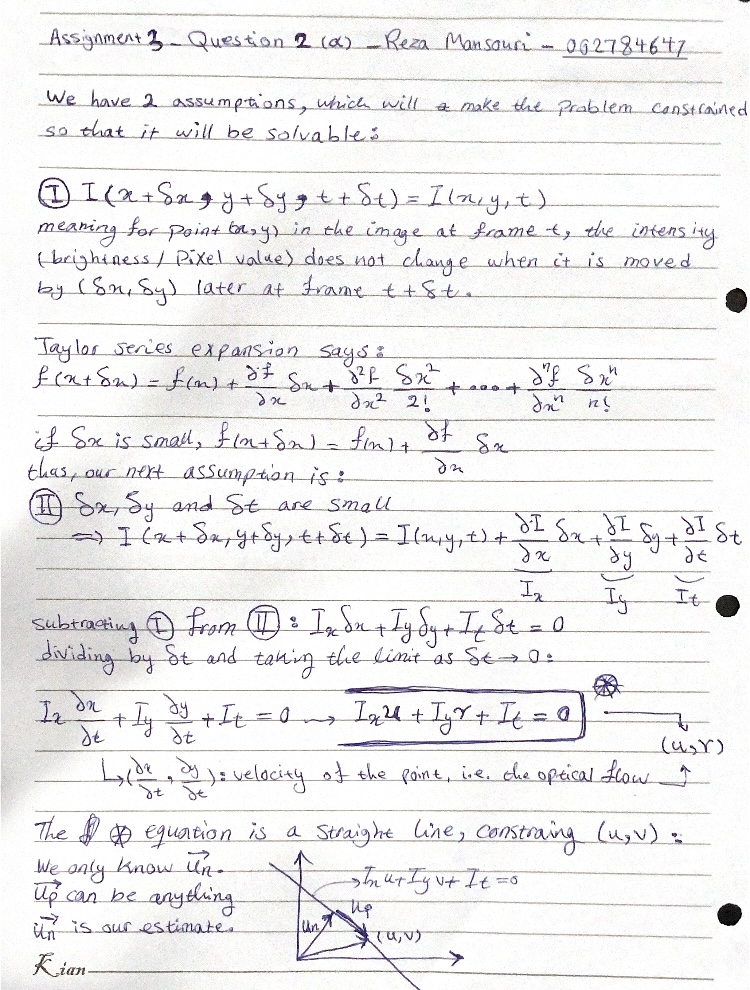 Assignment 3 - Question 2 (a) - Reza Mansouri - 002784647
We have 2 assumptions, which will make the problem constrained
so that it will be solvable:
Ⓘ I(x+δx, y+δy, t+δt) = I(x,y,t)
meaning for point (x,y) in the image at frame t, the intensity
(brightness / Pixel value) does not change when it is moved
by (δx, δy) later at frame t+δt.
Taylor series expansion says:
f(x+δx) = f(x) + ∂f/∂x δx + ∂²f/∂x² δx²/2! + .... + ∂ⁿf/∂xⁿ δxⁿ/n!
if δx is small, f(x+δx) = f(x) + ∂f/∂x δx
thas, our next assumption is:
(II) δx, δy and δt are small
⇒ I(x+δx, y+δy, t+δt) = I(x,y,t) + ∂I/∂x δx + ∂I/∂y δy + ∂I/∂t δt
Ix Iy It
subtracting Ⓘ from (II) : Ix δx + Iy δy + It δt = 0
dividing by δt and taking the limit as δt → 0:
Ix ∂x/∂t + Iy ∂y/∂t + It = 0 → Ixu + Iyv + It = 0 ⊛
(u,v)
↳ (∂x/∂t, ∂y/∂t): velocity of the point, i.e. the optical flow
The ⊛ equation is a straight line, constraing (u,v) :
We only know Un.
Up can be anything
Un is our estimate.
Ixu + Iyv + It = 0
Up
Un
(u,v)
Kian